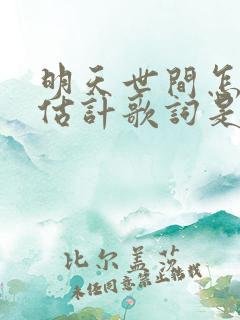 明天世間怎
估計歌詞是
比尔盖茨
未经同意禁止转载